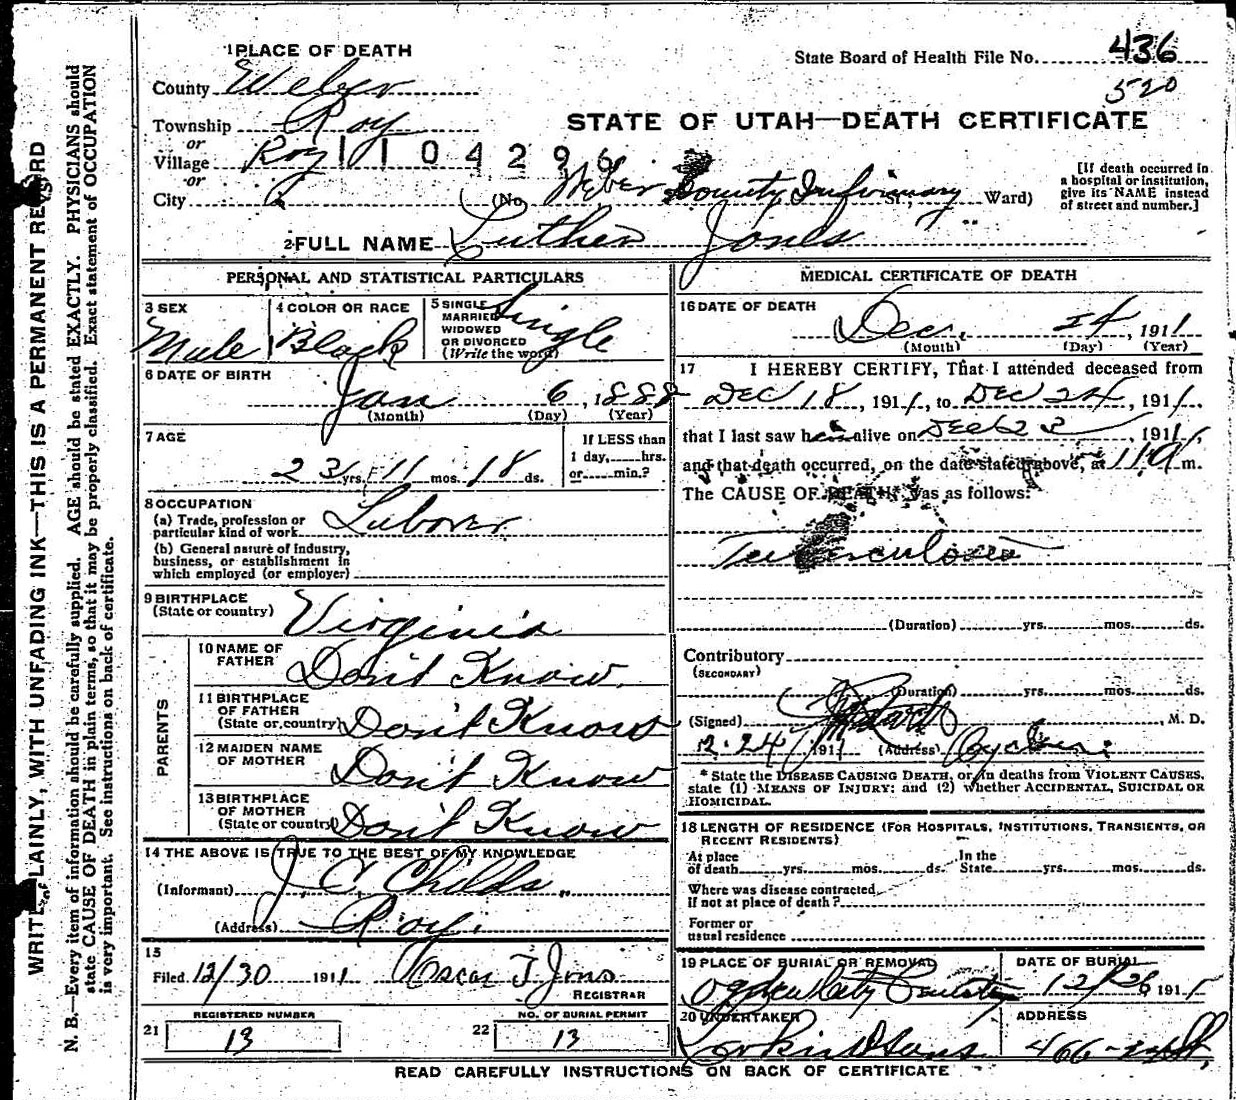 1 PLACE OF DEATH
State Board of Health File No. 436
520
County Weber
Township Roy
or
Village Roy 1104296
or
City
STATE OF UTAH—DEATH CERTIFICATE
(No. Weber County Infirmary St.; Ward)
[If death occurred in
a hospital or institution,
give its NAME instead
of street and number.]
2 FULL NAME Luther Jones
PERSONAL AND STATISTICAL PARTICULARS
3 SEX
Male
4 COLOR OR RACE
Black
5 SINGLE
MARRIED
WIDOWED
OR DIVORCED
(Write the word)
Single
6 DATE OF BIRTH
Jan 6, 1888
(Month) (Day) (Year)
7 AGE
23 yrs. 11 mos. 18 ds.
If LESS than
1 day, hrs.
or min.?
8 OCCUPATION
(a) Trade, profession or
particular kind of work Laborer
(b) General nature of industry,
business, or establishment in
which employed (or employer)
9 BIRTHPLACE
(State or country) Virginia
PARENTS
10 NAME OF
FATHER Don't Know
11 BIRTHPLACE
OF FATHER
(State or country) Don't Know
12 MAIDEN NAME
OF MOTHER Don't Know
13 BIRTHPLACE
OF MOTHER
(State or country) Don't Know
14 THE ABOVE IS TRUE TO THE BEST OF MY KNOWLEDGE
(Informant) J. C. Childs
(Address) Roy.
15
Filed 12/30 1911 Oscar T Jons
REGISTRAR
21 REGISTERED NUMBER
13
22 NO. OF BURIAL PERMIT
13
MEDICAL CERTIFICATE OF DEATH
16 DATE OF DEATH
Dec. 24, 1911
(Month) (Day) (Year)
17 I HEREBY CERTIFY, That I attended deceased from
Dec 18, 1911, to Dec 24, 1911,
that I last saw him alive on Dec 23, 1911,
and that death occurred, on the date stated above, at m.
The CAUSE OF DEATH* was as follows:
Tuberculosis
(Duration) yrs. mos. ds.
Contributory
(SECONDARY)
(Duration) yrs. mos. ds.
(Signed) , M. D.
12-24, 1911 (Address)
* State the DISEASE CAUSING DEATH, or, in deaths from VIOLENT CAUSES,
state (1) MEANS OF INJURY; and (2) whether ACCIDENTAL, SUICIDAL OR
HOMICIDAL.
18 LENGTH OF RESIDENCE (FOR HOSPITALS, INSTITUTIONS, TRANSIENTS, OR
RECENT RESIDENTS)
At place
of death yrs. mos. ds. In the
State yrs. mos. ds.
Where was disease contracted
If not at place of death?
Former or
usual residence
19 PLACE OF BURIAL OR REMOVAL
Ogden City
DATE OF BURIAL
12/26 1911
20 UNDERTAKER
Larkin & Sons
ADDRESS
466-24 St,
READ CAREFULLY INSTRUCTIONS ON BACK OF CERTIFICATE
WRITE PLAINLY, WITH UNFADING INK—THIS IS A PERMANENT RECORD
N. B.—Every item of information should be carefully supplied. AGE should be stated EXACTLY. PHYSICIANS should
state CAUSE OF DEATH in plain terms, so that it may be properly classified. Exact statement of OCCUPATION
is very important. See instructions on back of certificate.